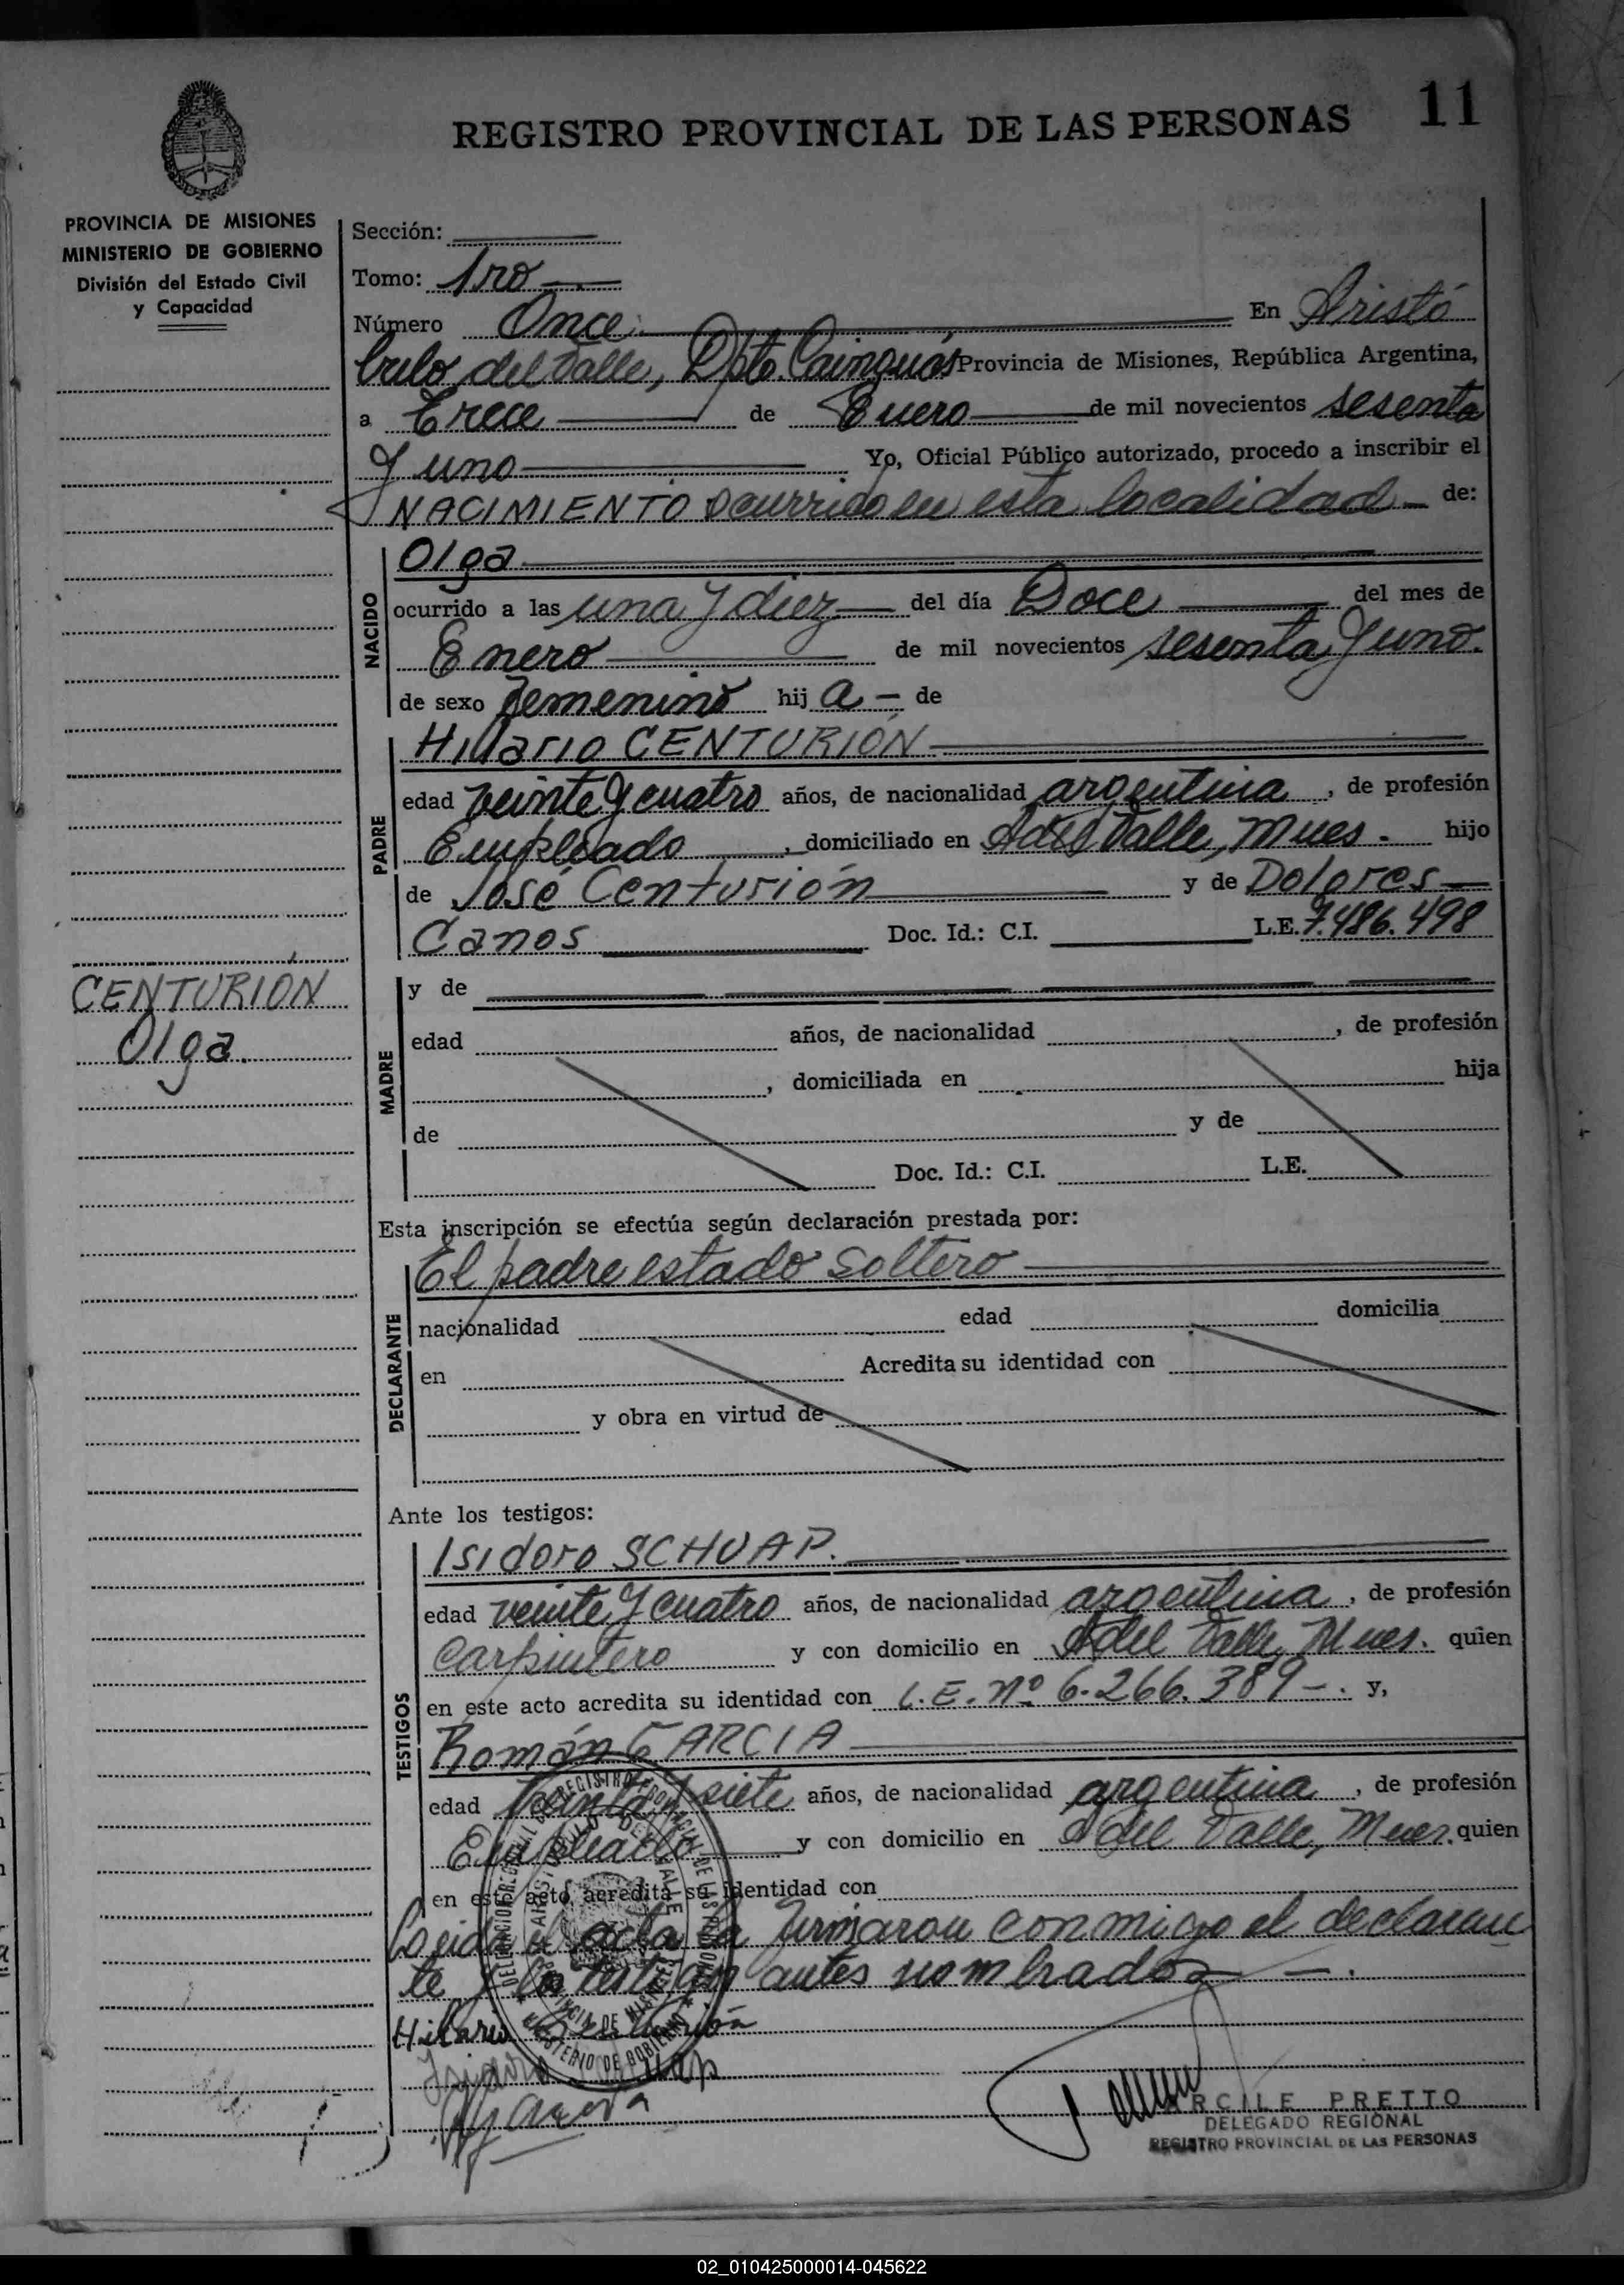 REGISTRO PROVINCIAL DE LAS PERSONAS 11
PROVINCIA DE MISIONES
MINISTERIO DE GOBIERNO
División del Estado Civil
y Capacidad
Sección:
Tomo: 1ro
Número Once. En Aristó
bulo del Valle, Dpto. Cainguás Provincia de Misiones, República Argentina,
a Trece de Enero de mil novecientos sesenta
y uno Yo, Oficial Público autorizado, procedo a inscribir el
NACIMIENTO ocurrido en esta localidad de:
NACIDO
Olga
ocurrido a las una y diez del día Doce del mes de
Enero de mil novecientos sesenta y uno.
de sexo femenino hij a - de
PADRE
Hilario CENTURIÓN
edad veinte y cuatro años, de nacionalidad argentina, de profesión
Empleado, domiciliado en A del Valle, Mnes. hijo
de José Centurión y de Dolores
Canos Doc. Id.: C.I. L.E. 7.486.498
CENTURIÓN
Olga.
MADRE
y de
edad años, de nacionalidad , de profesión
, domiciliada en hija
de y de
Doc. Id.: C.I. L.E.
Esta inscripción se efectúa según declaración prestada por:
DECLARANTE
El padre estado soltero
nacionalidad edad domicilia
en Acredita su identidad con
y obra en virtud de
Ante los testigos:
TESTIGOS
Isidoro SCHUAP.
edad veinte y cuatro años, de nacionalidad argentina, de profesión
Carpintero y con domicilio en A del Valle, Mnes. quien
en este acto acredita su identidad con L.E. Nº 6.266.389 -. y,
Román GARCIA
edad y siete años, de nacionalidad argentina, de profesión
Empleado y con domicilio en A del Valle, Mnes. quien
en este acto acredita su identidad con
Leida el acta la firmaron conmigo el declaran
te y los testigos antes nombrados -.
Hilario Centurión
Isidoro
RCILE PRETTO
DELEGADO REGIONAL
REGISTRO PROVINCIAL DE LAS PERSONAS
02_010425000014-045622